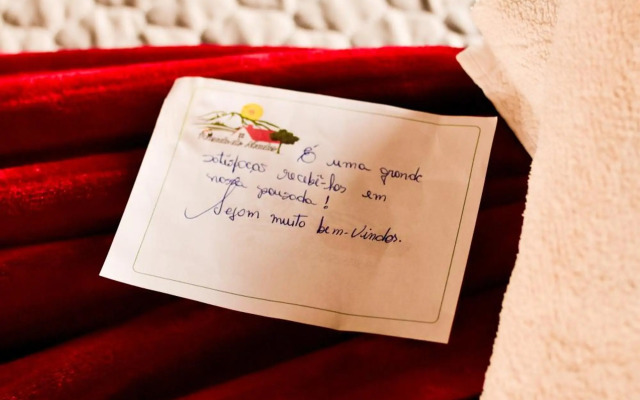 É uma grande
satisfação recebê-los em
nossa pousada!
Sejam muito bem-vindos.